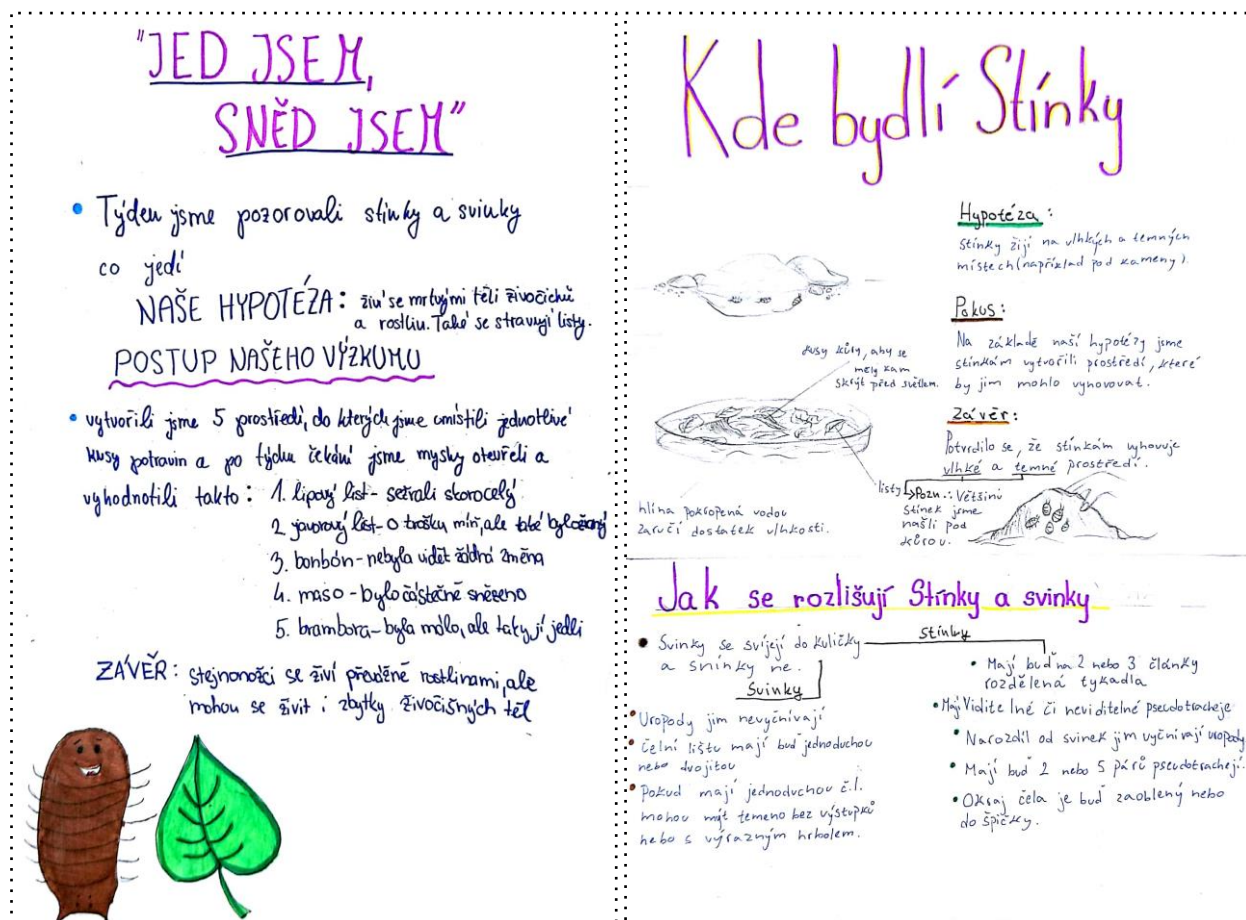 "JED JSEM,
SNĚD JSEM"
• Týden jsme pozorovali stínky a svinky
co jedí
NAŠE HYPOTÉZA: živí se mrtvými těli živočichů
a rostlin. Také se stravují listy.
POSTUP NAŠEHO VÝZKUMU
• vytvořili jsme 5 prostředí, do kterých jsme umístili jednotlivé
kusy potravin a po týdnu čekání jsme mysky otevřeli a
vyhodnotili takto: 1. lipový list - sežrali skorocelý
2. javorový list - o trošku míň, ale také byl ožraný
3. bonbón - nebyla vidět žádná změna
4. maso - bylo částečně snězeno
5. brambora - byla málo, ale taky jí jedli
ZÁVĚR: stejnonožci se živí převážně rostlinami, ale
mohou se živit i zbytky živočišných těl
Kde bydlí Stínky
Hypotéza:
Stínky žijí na vlhkých a temných
místech (například pod kameny).
Pokus:
Na základě naší hypotézy jsme
stínkám vytvořili prostředí, které
by jim mohlo vyhovovat.
kusy kůry, aby se
měly kam
skrýt před světlem.
Závěr:
Potvrdilo se, že stínkám vyhovuje
vlhké a temné prostředí.
listy
Pozn.: Většinu
stínek jsme
našli pod
kůrou.
hlína pokropená vodou
zaručí dostatek vlhkosti.
Jak se rozlišují Stínky a svinky
• Svinky se svíjejí do kuličky
a stínky ne.
Svinky
• Uropody jim nevyčnívají
• Čelní lištu mají buď jednoduchou
nebo dvojitou
• Pokud mají jednoduchou č.l.
mohou mít temeno bez výstupků
nebo s výrazným hrbolem.
Stínky
• Mají buď na 2 nebo 3 články
rozdělená tykadla
• Mají Viditelné či neviditelné pseudotracheje
• Narozdíl od svinek jim vyčnívají uropody
• Mají buď 2 nebo 5 párů pseudotrachejí.
• Okraj čela je buď zaoblený nebo
do špičky.